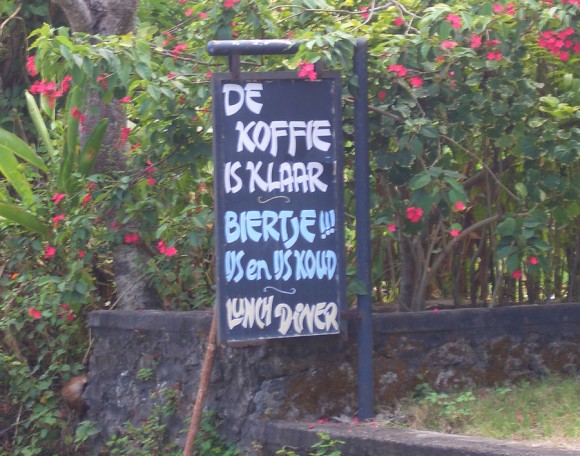 DE
KOFFIE
IS KLAAR
BIERTJE!!!
IJS en IJSKOUD
LUNCH DINER